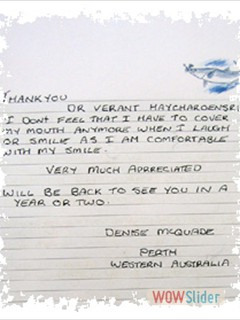 THANKYOU
DR VERANT MAYCHAROENSRI
I DON'T FEEL THAT I HAVE TO COVER
MY MOUTH ANYMORE WHEN I LAUGH
OR SMILE AS I AM COMFORTABLE
WITH MY SMILE.
VERY MUCH APPRECIATED
WILL BE BACK TO SEE YOU IN A
YEAR OR TWO.
DENISE MCQUADE
PERTH
WESTERN AUSTRALIA
WOWSlider